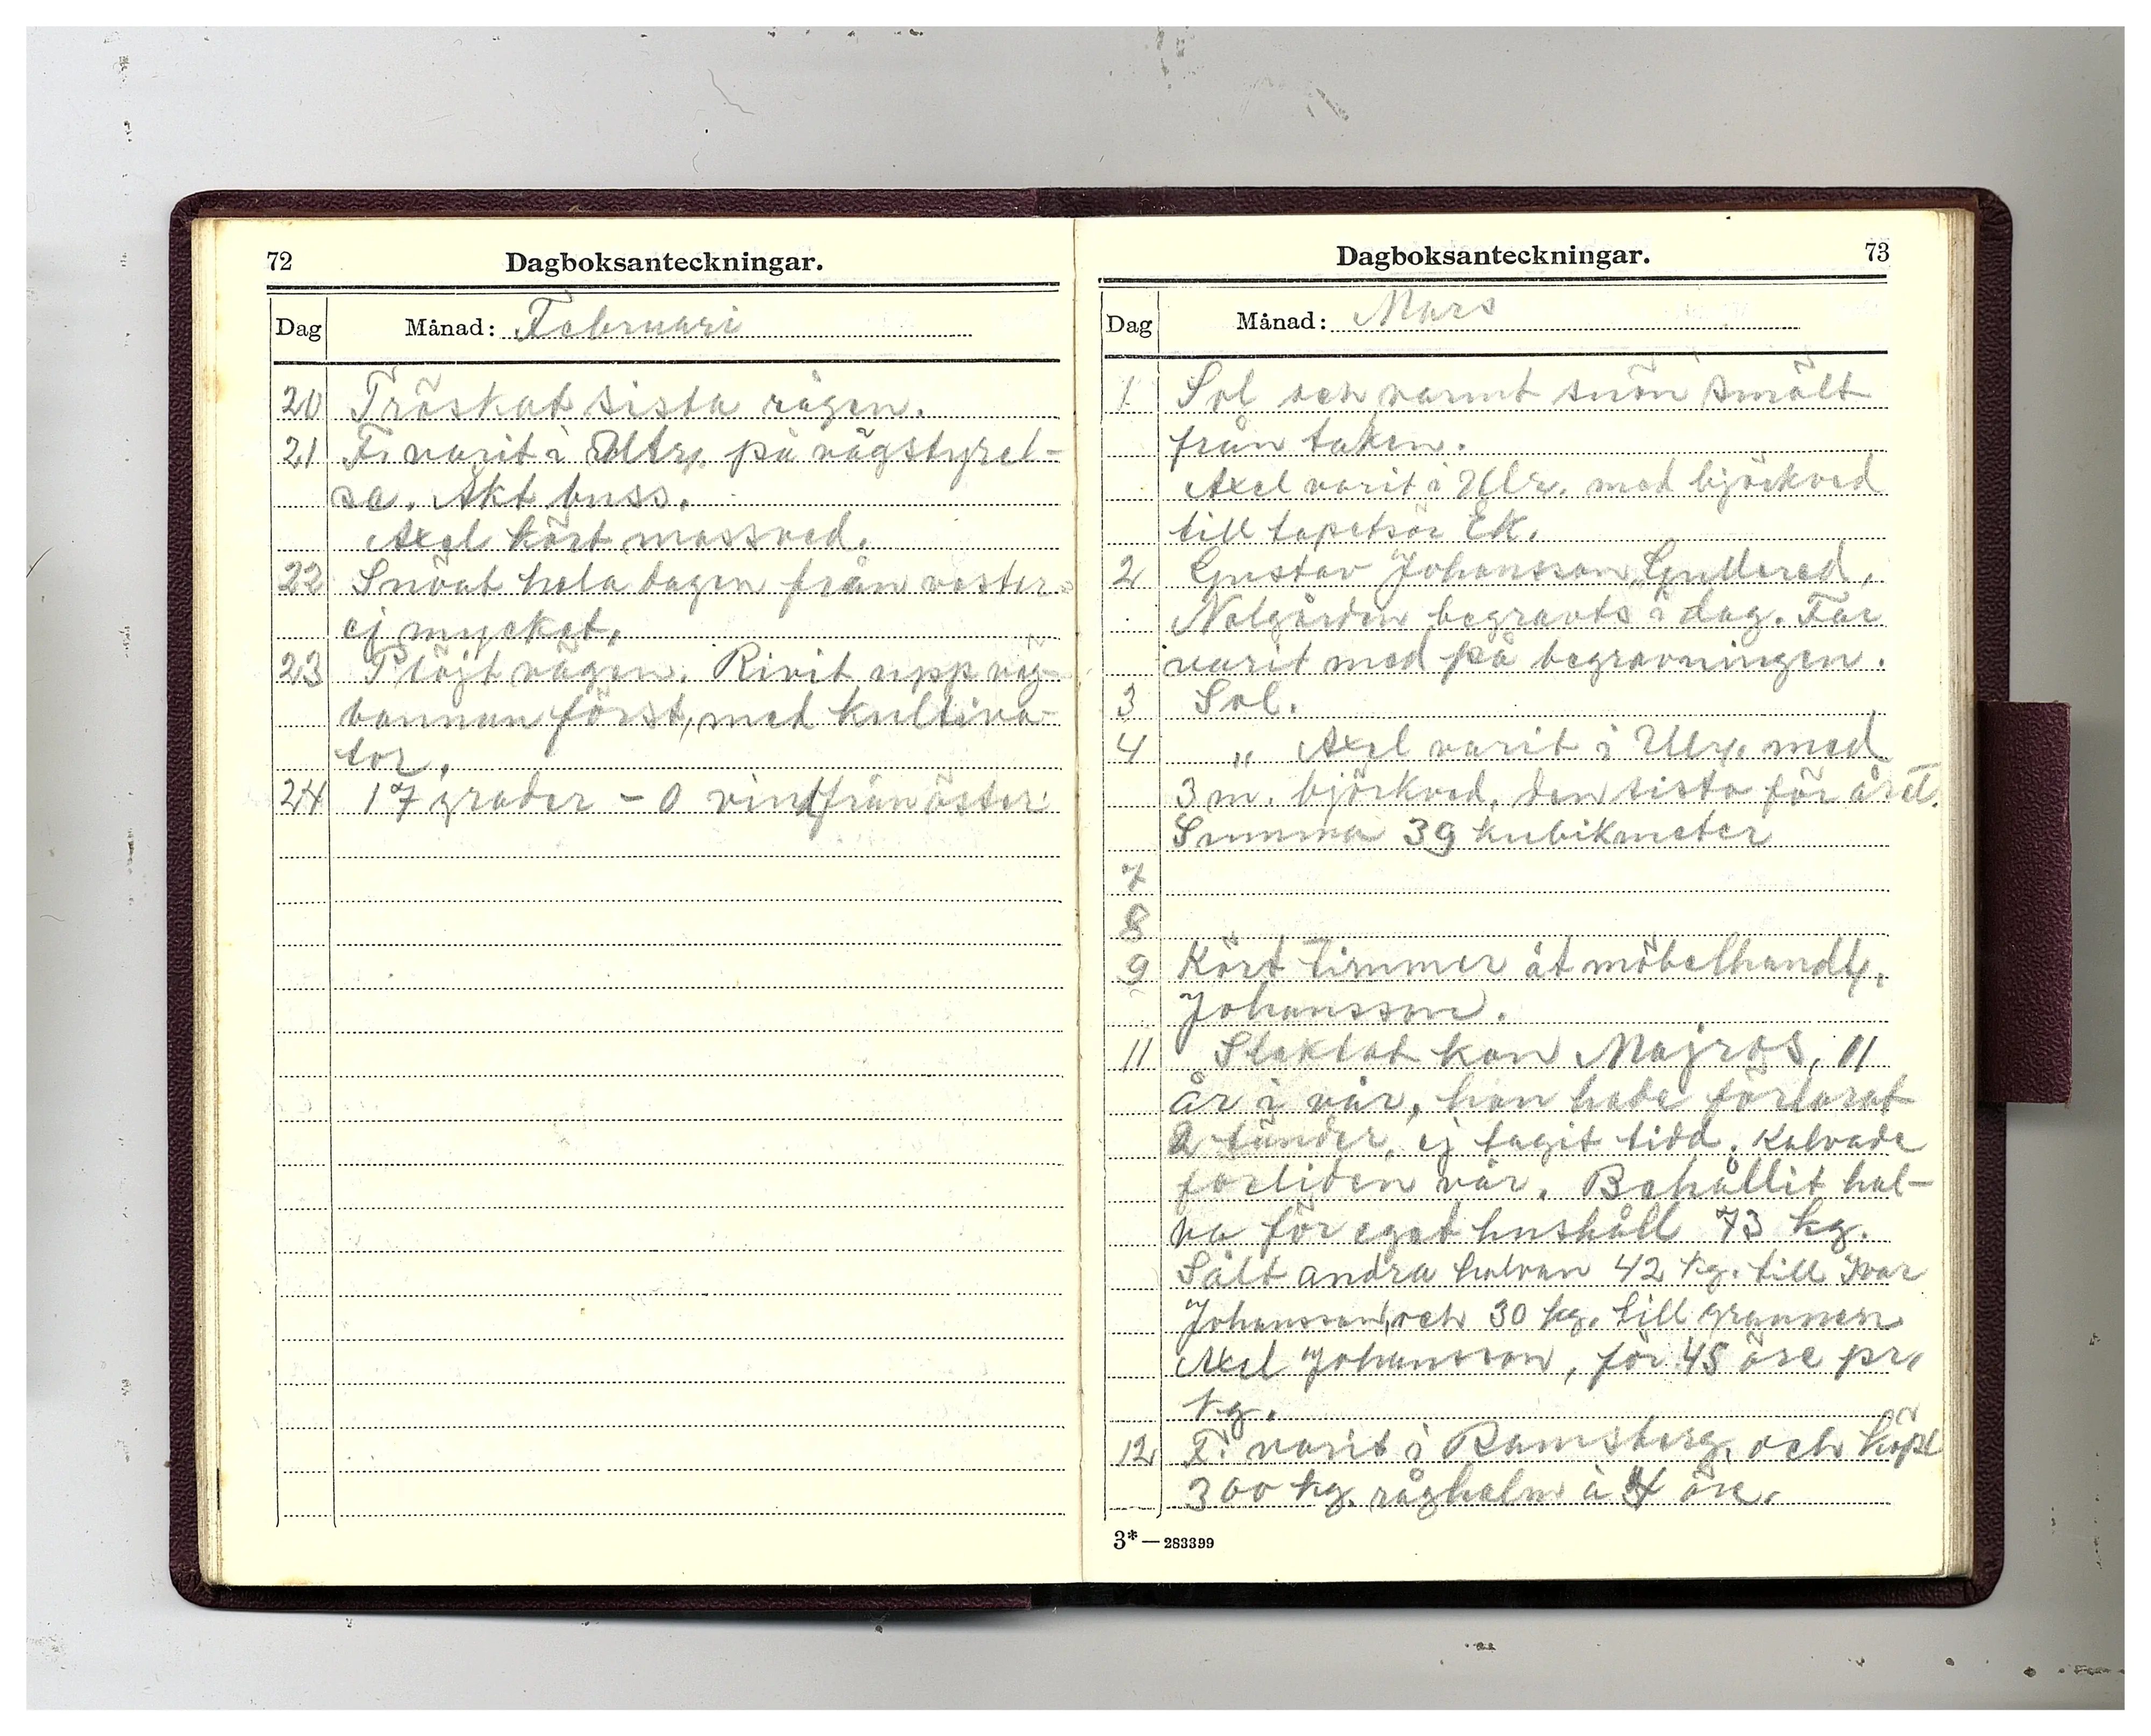 72
Dagboksanteckningar.
Dag Månad: Februari
20 Tröskat sista rågen.
21 F. varit i Ulr. på vägstyrel-
se. Åkt buss.
Axel kört mossved.
22 Snöat hela dagen från väster
ej mycket.
23 Plöjt vägen. Rivit upp väg-
bannan först, med kultiva-
tor.
24 17 grader - 0 vind från öster
Dagboksanteckningar.
73
Dag Månad: Mars
1 Sol och varmt snön smält
från taken.
Axel varit i Ulr. med björkved
till tapetsör Ek.
2 Gustav Johansson Gullered,
Nolgården begravts i dag. Far
varit med på begravningen.
3 Sol.
4 " Axel varit i Ulr. med
3 m. björkved, den sista för året.
Summa 39 kubikmeter
7
8
9 Kört timmer åt möbelhandl.
Johansson.
11 Slaktat kon Majros, 11
år i vår, hon hade förlorat
2 tänder, ej tagit tidd. Kalvade
förliden vår. Behållit hal-
va för eget hushåll 73 kg.
Sålt andra halvan 42 kg. till Ivar
Johansson, och 30 kg. till grannen
Axel Johansson, för 45 öre pr.
kg.
12 F. varit i Ramsberg. och köpt
300 kg. råghalm à 4 öre.
3*—283399